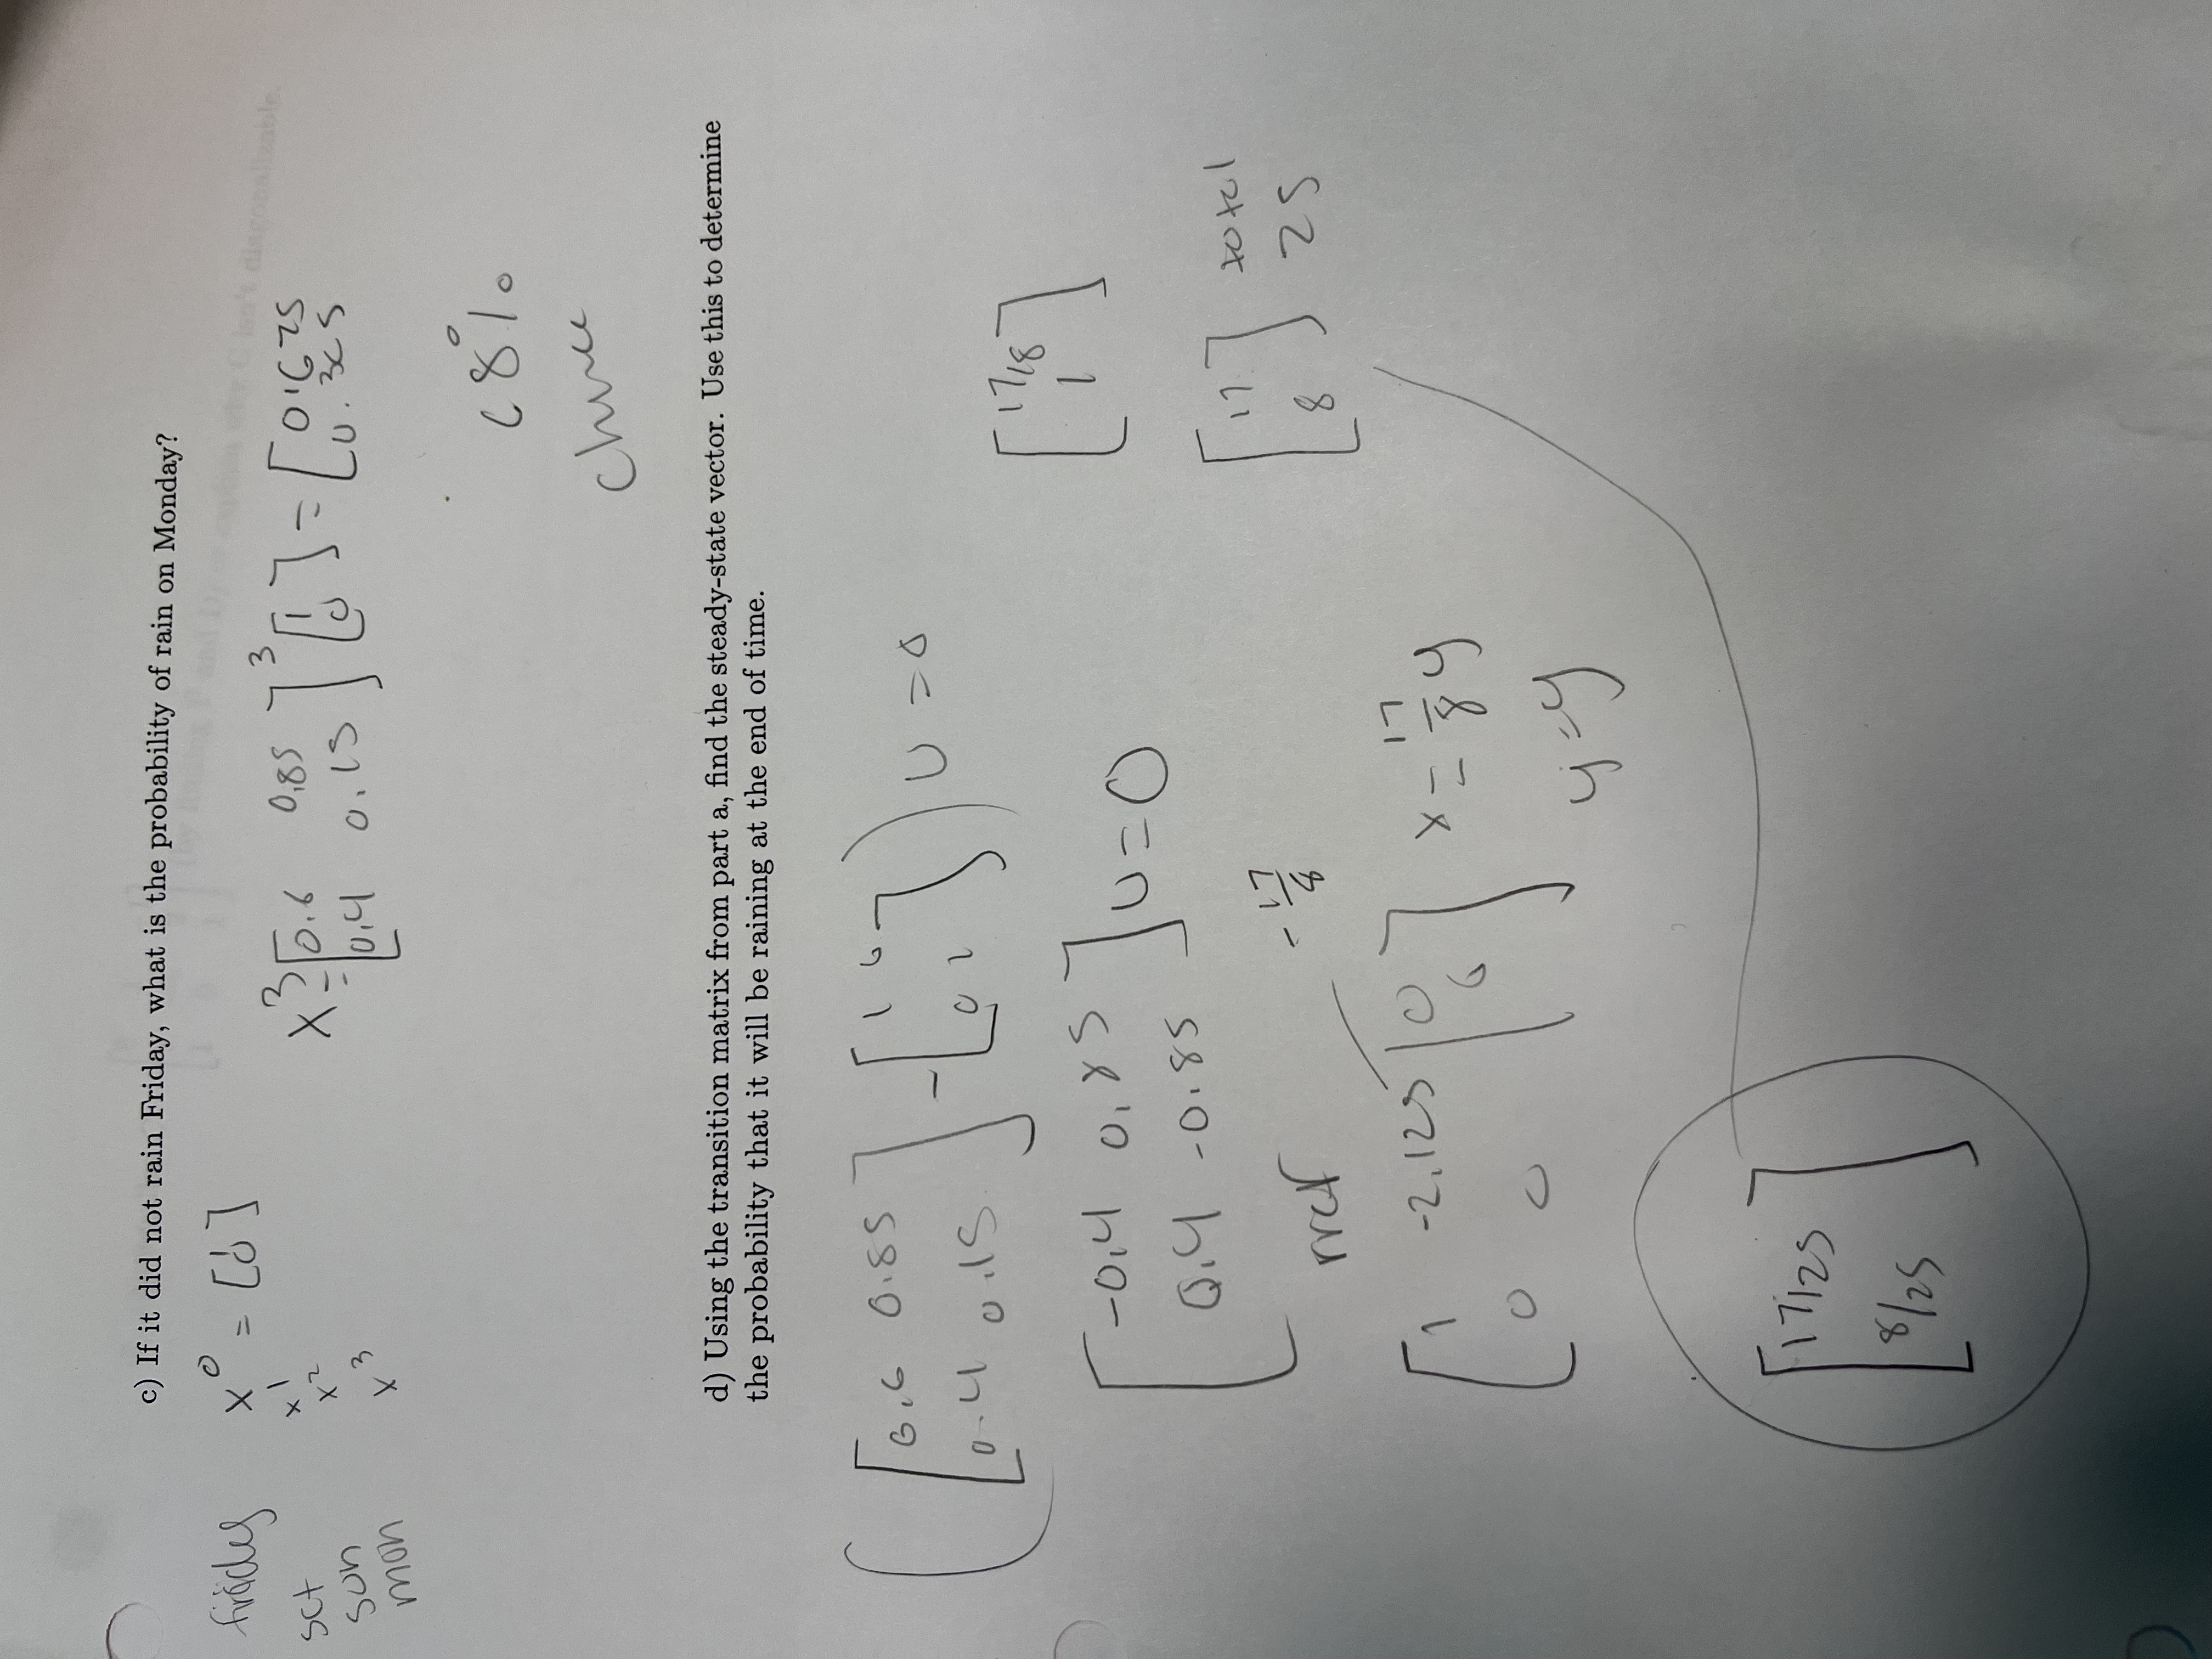 c) If it did not rain Friday, what is the probability of rain on Monday?
x⁰ = [1 0]
sct x¹
sun x²
mon x³
x³ = [0.6 0.85 0.4 0.15]³ [1 0] = [0.675 0.325
68%
chance
d) Using the transition matrix from part a, find the steady-state vector. Use this to determine
the probability that it will be raining at the end of time.
( [0.6 0.85
0.4 0.15] - [1 0
0 1] ) U = 0
[17/8
1]
[-0.4 0.85
0.4 -0.85] U = 0
[17
8] total
25
rref
-17/8
[1 -2.125 | 0
0 0 | 0]
x = 17/8 y
y = y
[17/25
8/25]